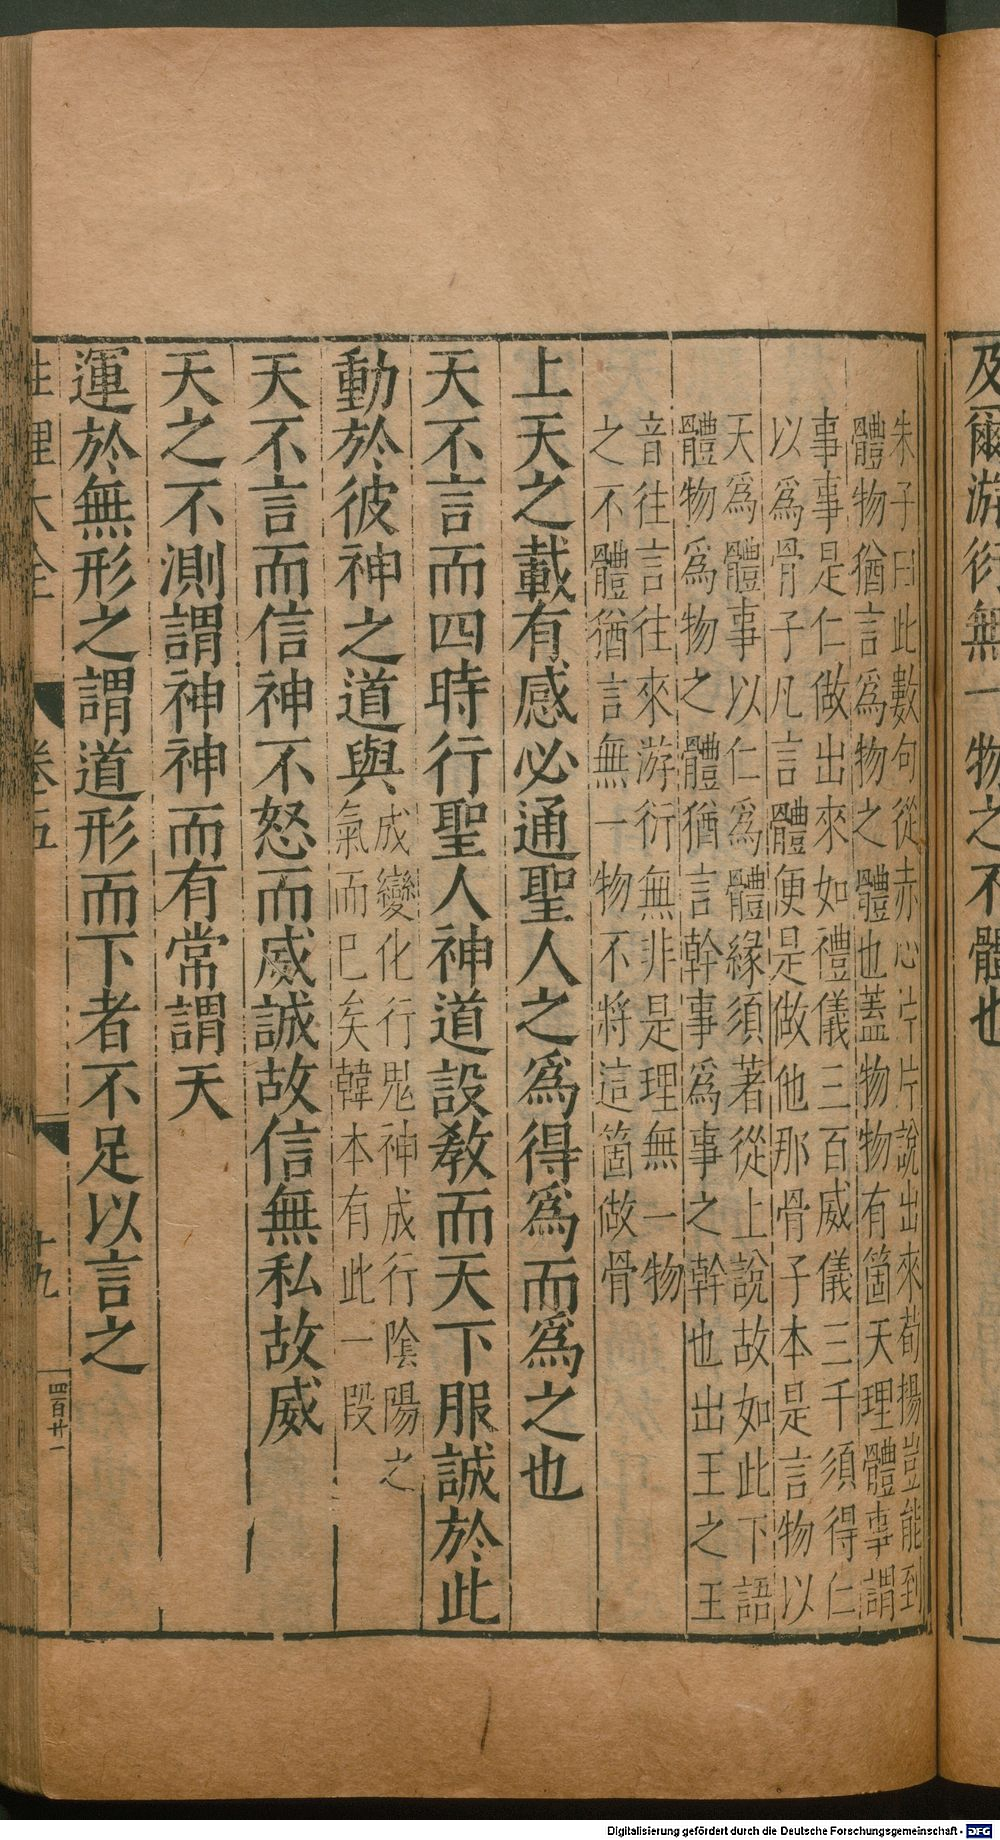 及爾游衍無一物之不體也
朱子曰此數句從赤心片片說出來荀揚豈能到
體物猶言爲物之體也蓋物物有箇天理體事謂
事事是仁做出來如禮儀三百威儀三千須得仁
以爲骨子凡言體便是做他那骨子本是言物以
天爲體事以仁爲體緣須著從上說故如此下語
體物爲物之體猶言幹事爲事之幹也出王之王
音往言往來游衍無非是理無一物
之不體猶言無一物不將這箇做骨
上天之載有感必通聖人之爲得爲而爲之也
天不言而四時行聖人神道設教而天下服誠於此
動於彼神之道與
成變化行鬼神成行陰陽之
氣而巳矣韓本有此一段
天不言而信神不怒而威誠故信無私故威
天之不測謂神神而有常謂天
運於無形之謂道形而下者不足以言之
性理大全 卷五 十九
四百廿一
Digitalisierung gefördert durch die Deutsche Forschungsgemeinschaft - DFG